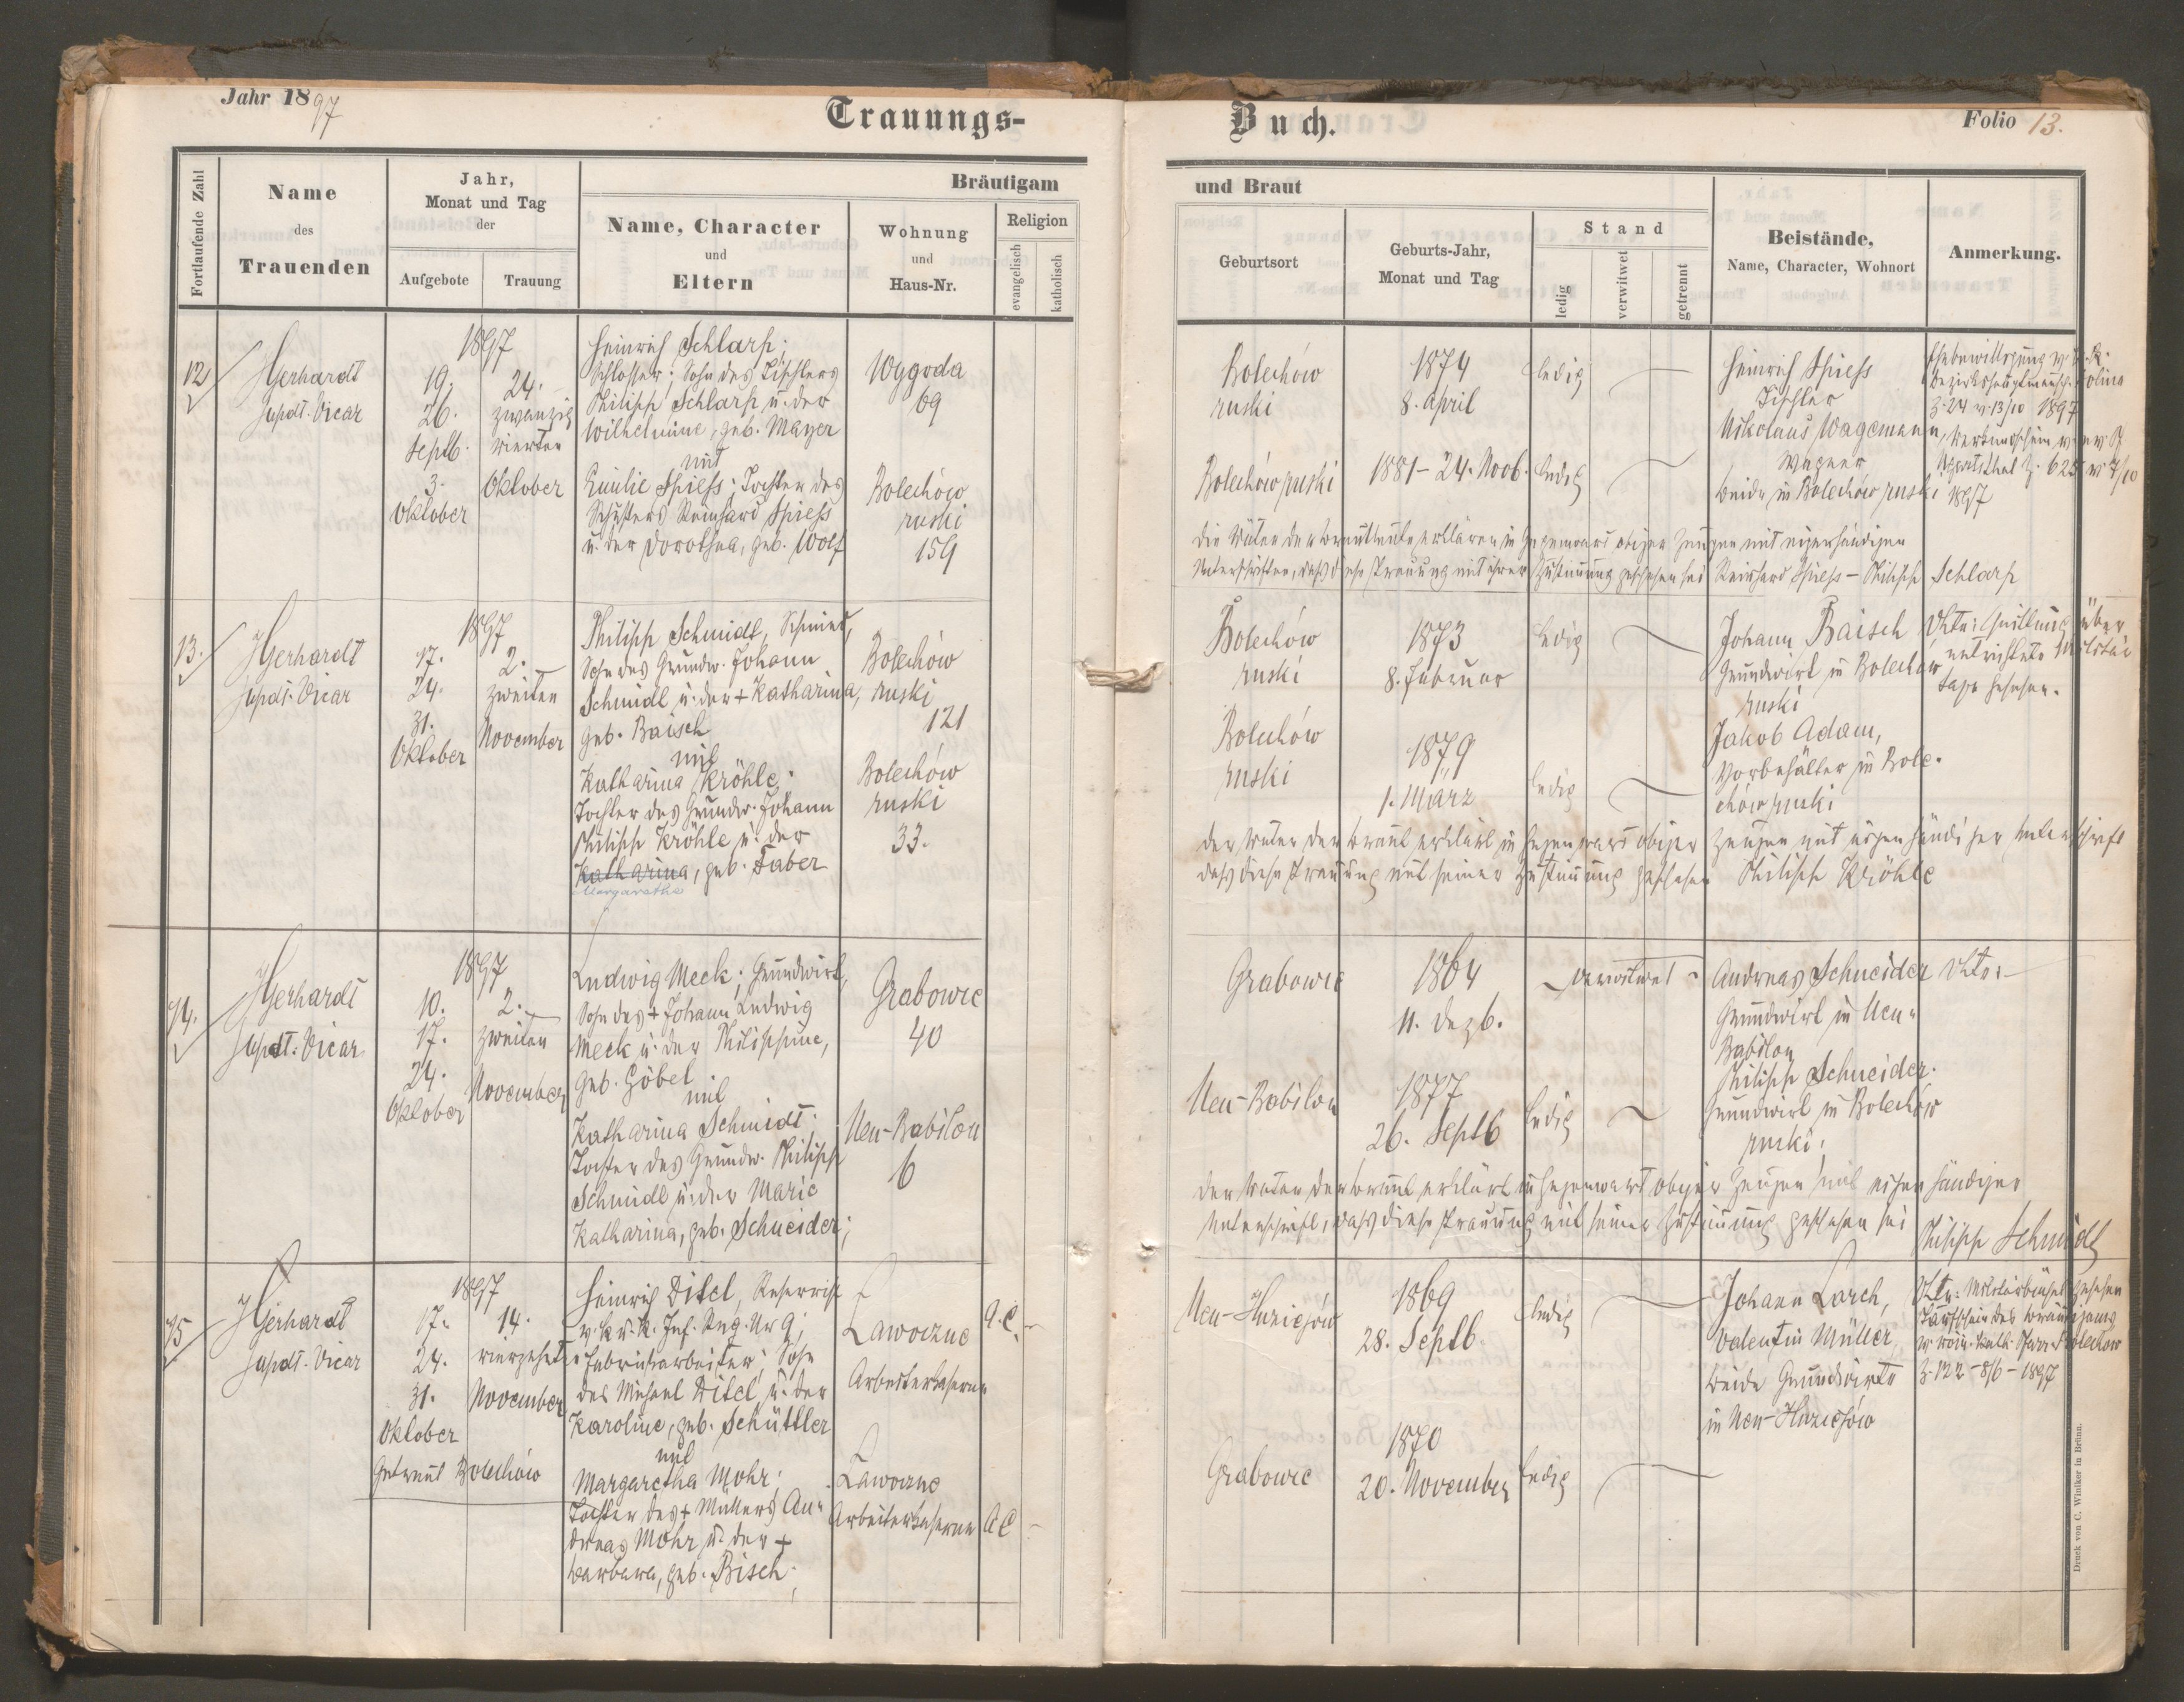 Jahr 1897
Trauungs-
Fortlaufende Zahl
Name
des
Trauenden
Jahr,
Monat und Tag
der
Aufgebote
Trauung
Bräutigam
Name, Character
und
Eltern
Wohnung
und
Haus-Nr.
Religion
evangelisch
katholisch
12
JGerhardt
Supdt. Vicar
1897
19.
26.
Septb.
3.
Oktober
24.
zwanzig
vierten
Oktober
Heinrich Schlarp;
Schlosser; Sohn des Tischlers
Philipp Schlarp u. der
Wilhelmine, geb. Mayer
mit
Emilie Spiess; Tochter des
Schusters Reinhard Spiess
u. der Dorothea, geb. Wolf
Wygoda
69
Bolechów
ruski
159
13.
JGerhardt
Supdt. Vicar
1897
17.
24.
31.
Oktober
2.
zweiten
November
Philipp Schmidt, Schmied,
Sohn des Grundw. Johann
Schmidt u. der + Katharina,
geb. Baisch
mit
Katharina Kröhle;
Tochter des Grundw. Johann
Philipp Kröhle u. der
Katharina, geb. Faber
Margaretha
Bolechów
ruski
121
Bolechów
ruski
33.
14.
JGerhardt
Supdt. Vicar
1897
10.
17.
24.
Oktober
2.
zweiten
November
Ludwig Meck; Grundwirt,
Sohn des + Johann Ludwig
Meck u. der Philippine,
geb. Göbel
mit
Katharina Schmidt;
Tochter des Grundw. Philipp
Schmidt u. der Marie
Katharina, geb. Schneider;
Grabowic
40
Neu-Babilon
6
15
JGerhardt
Supdt. Vicar
1897
17.
24.
31.
Oktober
14.
vierzehnten
November
Getraut Bolechów
Heinrich Ditel, Reservist
v. k. u. k. Inf. Reg. Nr 9;
Fabriksarbeiter; Sohn
des Michael Ditel u. der
Karoline, geb. Schüttler
mit
Margaretha Mohr;
Tochter des + Müllers An-
dreas Mohr u. der +
Barbara, geb. Bisch;
Lawoczne
Arbeiterkaserne
A.C.
Lawoczne
Arbeiterkaserne
A C
Buch.
Folio 13.
und Braut
Geburtsort
Geburts-Jahr,
Monat und Tag
Stand
ledig
verwitwet
getrennt
Beistände,
Name, Character, Wohnort
Anmerkung.
Bolechów
ruski
1874
8. April
ledig
Heinrich Spiess
Tischler
Nikolaus Wagemann,
Wagner
beide in Bolechów ruski
Ehebewilligung v. k. k.
Bezirkshauptmannsch. Dolina
Z. 24 v. 13/10 1897
1897
Bolechów ruski
1881 - 24. Novb.
ledig
Die Väter der Brautleute erklären in Gegenwart obiger Zeugen mit eigenhändigen
Unterschriften, dass diese Trauung mit ihrer Zustimmung geschehen sei Reinhard Spiess - Philipp Schlarp
Bolechów
ruski
1873
8. Februar
ledig
Johann Baisch
Grundwirt in Bolechów
ruski
Jakob Adam,
in Bole-
chów ruski
Quittung über
entrichtete Militär
taxe gesehen.
Bolechów
ruski
1879
1. März
ledig
Der Vater der Braut erklärt in Gegenwart obiger Zeugen mit eigenhändiger Unterschrift
dass diese Trauung mit seiner Zustimmung geschehen Philipp Kröhle
Grabowic
1864
11. Dezb.
verwitwet
Andreas Schneider
Grundwirt in Neu-
Babilon
Philipp Schneider.
Grundwirt in Bolechów
ruski;
Neu-Babilon
1877
26. Septb
ledig
Der Vater der Braut erklärt in Gegenwart obiger Zeugen mit eigenhändiger
Unterschrift, dass diese Trauung mit seiner Zustimmung geschehen sei
Philipp Schmidt
Neu-Huziejów
1869
28. Septb.
ledig
Johann Larch,
Valentin Müller,
beide Grundwirte
in Neu-Huziejów
gesehen
Taufschein des Bräutigams
v. röm. kath. Pfarre Bolechów
Z. 122 - 8/6 - 1897
Grabowic
1870
20. November
ledig
Druck von C. Winiker in Brünn.